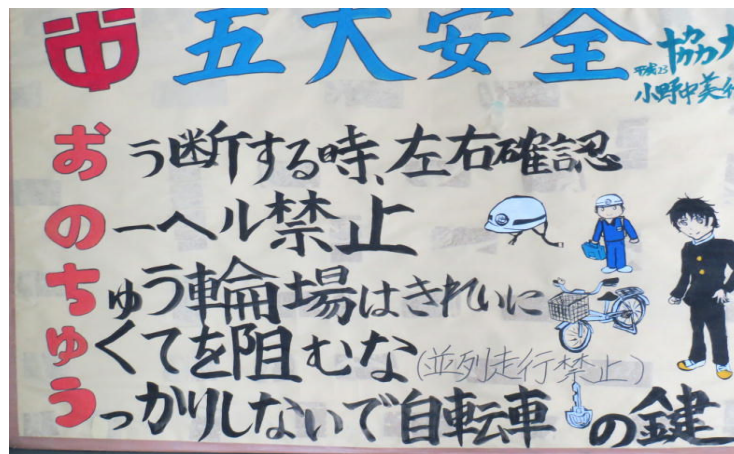 中 五大安全 協力
平成23
小野中美術
おう断する時、左右確認
のーヘル禁止
ちゅう輪場はきれいに
ゆくてを阻むな(並列走行禁止)
うっかりしないで自転車の鍵